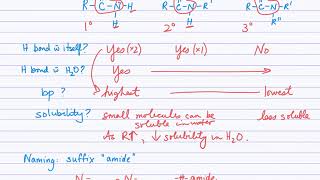 R-C-N-H R-C-N-R' R-C-N-R'
H H R"
1° 2° 3°
H bond w̄ itself? Yes (×2) Yes (×1) No
H bond w̄ H₂O? Yes
bp? highest lowest
solubility? small molecules can be soluble in water less soluble
As R↑, ↓ solubility in H₂O.
Naming: suffix "amide"